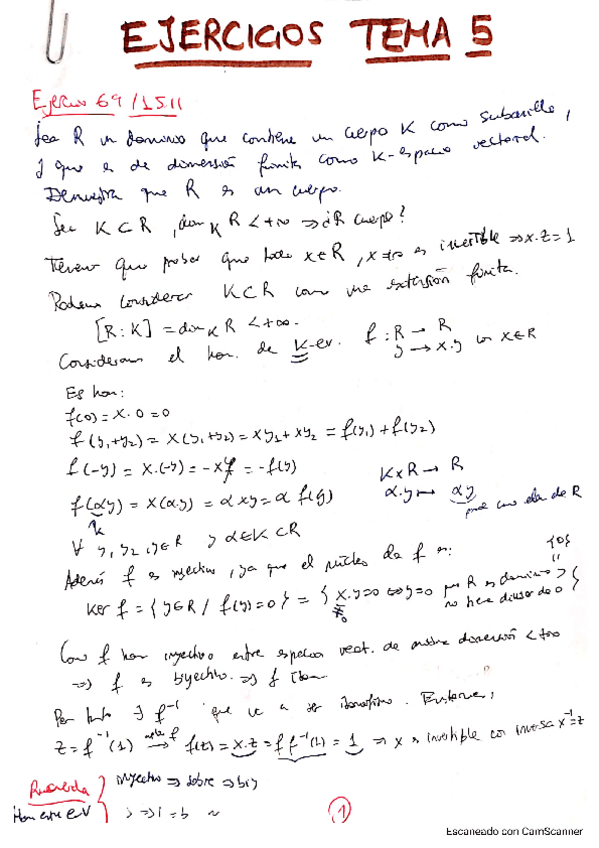 EJERCICIOS TEMA 5
Ejercicio 69/15.11
Sea R un dominio que contiene un cuerpo K como subanillo,
y que es de dimensión finita como K-espacio vectorial.
Demuestra que R es un cuerpo.
Sea K ⊂ R, dim_K R < +∞ ⇒ ¿R cuerpo?
Tenemos que probar que todo x∈R, x≠0 es invertible ⇒ x·z=1
Podemos considerar K⊂R como una extensión finita.
[R:K] = dim_K R < +∞.
Consideramos el hom. de K-ev. f: R → R
y → x·y con x∈R
Es hom:
f(0) = x·0 = 0
f(y₁+y₂) = x(y₁+y₂) = xy₁ + xy₂ = f(y₁) + f(y₂)
f(-y) = x·(-y) = -xy = -f(y)
K×R → R
f(αy) = x(α·y) = α xy = α f(y)
α·y → αy
K
∀ y₁, y₂, y∈R y α∈K⊂R
Además f es inyectivo, ya que el núcleo de f es:
{0}
Ker f = {y∈R / f(y)=0} = {x·y=0 ⇔ y=0 por R es dominio
no tiene divisor de 0}
≠0
Como f hom inyectivo entre espacios vect. de misma dimensión < +∞
⇒ f es biyectivo. ⇒ f isom.
Por tanto ∃ f⁻¹ que va a ser isomorfismo. Entonces:
z = f⁻¹(1) → f(z) = x·z = f f⁻¹(1) = 1 ⇒ x es invertible con inversa x⁻¹=z
Recuerda
inyectivo ⇒ sobre ⇒ biy
Hom entre eV
1
Escaneado con CamScanner